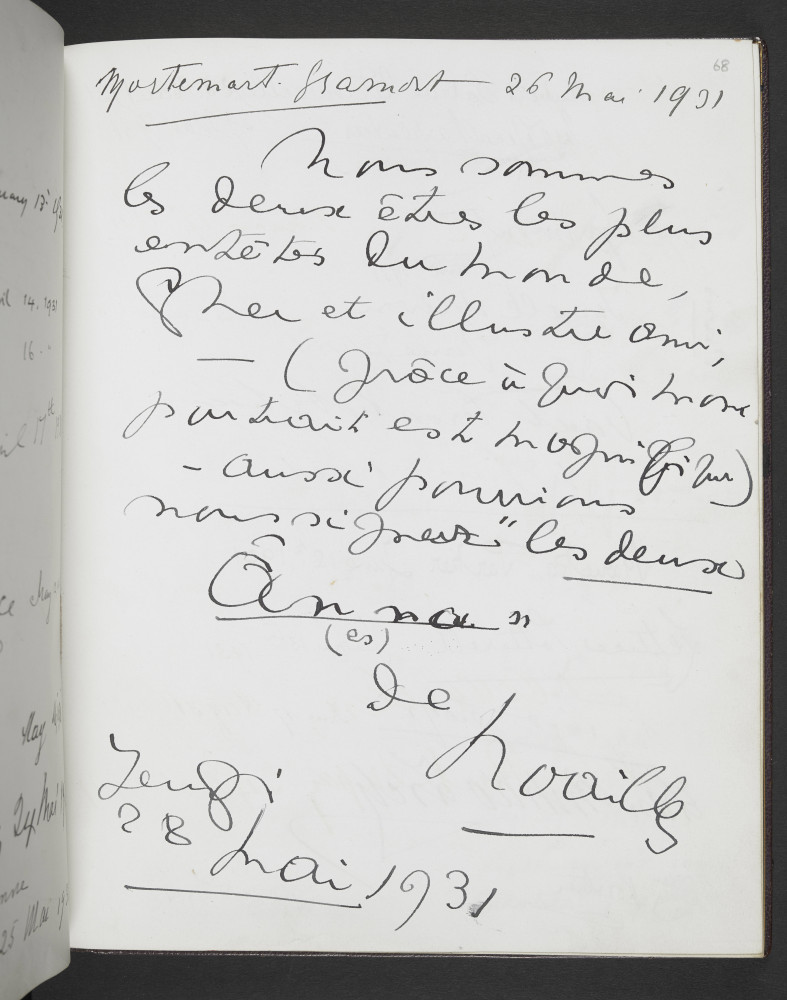 68
Mortemart. Gramont 26 Mai 1931
Nous sommes
les deux êtres les plus
entêtés du monde,
Cher et illustre ami,
— (grâce à quoi mon
portrait est magnifique)
– aussi pouvions
nous signer "les deux
Ânna"
(es)
de
Noailles
Jeudi
28 mai 1931
17
14. 1931
16
May
24 Mai
25 Mai